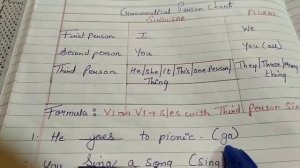 Grammatical Person Chart
SINGULAR PLURAL
First Person I We
Second person You You (all)
Third Person He/She/it/This/one Person/Thing They/Those/Many thing
Formula: V1 or V1+s/es with Third Person Sin
1. He goes to picnic. (go)
You Sing a song (sing